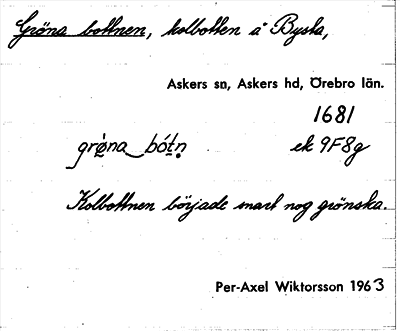 Gröna bottnen, kolbotten å Bysta,
Askers sn, Askers hd, Örebro län.
1681
grö̀na bót̠ṇ ek 9F8g
Kolbottnen började snart nog grönska.
Per-Axel Wiktorsson 1963